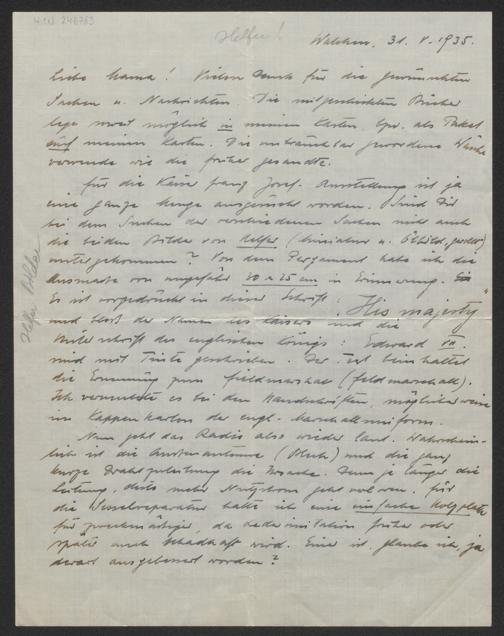 H.I.N. 240753
Helfer!
Walchen, 31. V. 1935.
Liebe Mama! Vielen Dank für die gewünschten
Sachen u. Nachrichten. Die mitgeschickten Bücher
lege soweit möglich in meinen Kasten, bzw. als Paket
auf meinen Kasten. Die unbrauchbar gewordene Wäsche
verwende wie die früher gesandte.
Für die Kaiser Franz Josef-Ausstellung ist ja
eine ganze Menge ausgesucht worden. Sind Dir
bei dem Suchen der verschiedenen Sachen nicht auch
die beiden Bilder von Helfer (Miniatur u. Ölbild, )
untergekommen? Von dem Pergament habe ich die
Ausmasse von ungefähr 20 x 25 cm in Erinnerung.
Es ist vorgedruckt in dieser Schrift: "His majesty"
und bloß der Namen des Kaisers und die
Unterschrift des englischen Königs: Edward VII.
sind mit Tinte geschrieben. Der Text beinhaltet
die Ernennung zum fieldmarshal (Feldmarschall).
Ich vermutete es bei den Handschriften, möglicherweise
im Kappenkarton der engl. Marschallsuniform.
Nun geht das Radio also wieder laut. Wahrschein-
lich ist die Aussenantenne (Blech) und die ganz
kurze Drahtzuleitung die Ursache. Denn je länger die
Leitung, desto mehr Nutzstrom geht verloren. Für
die Sesselreparatur halte ich eine einfache Holzplatte
für zweckmässiger, da Lederimitation früher oder
später auch schadhaft wird. Einer ist, glaube ich, ja
derart ausgebessert worden?
Helfer Bilder